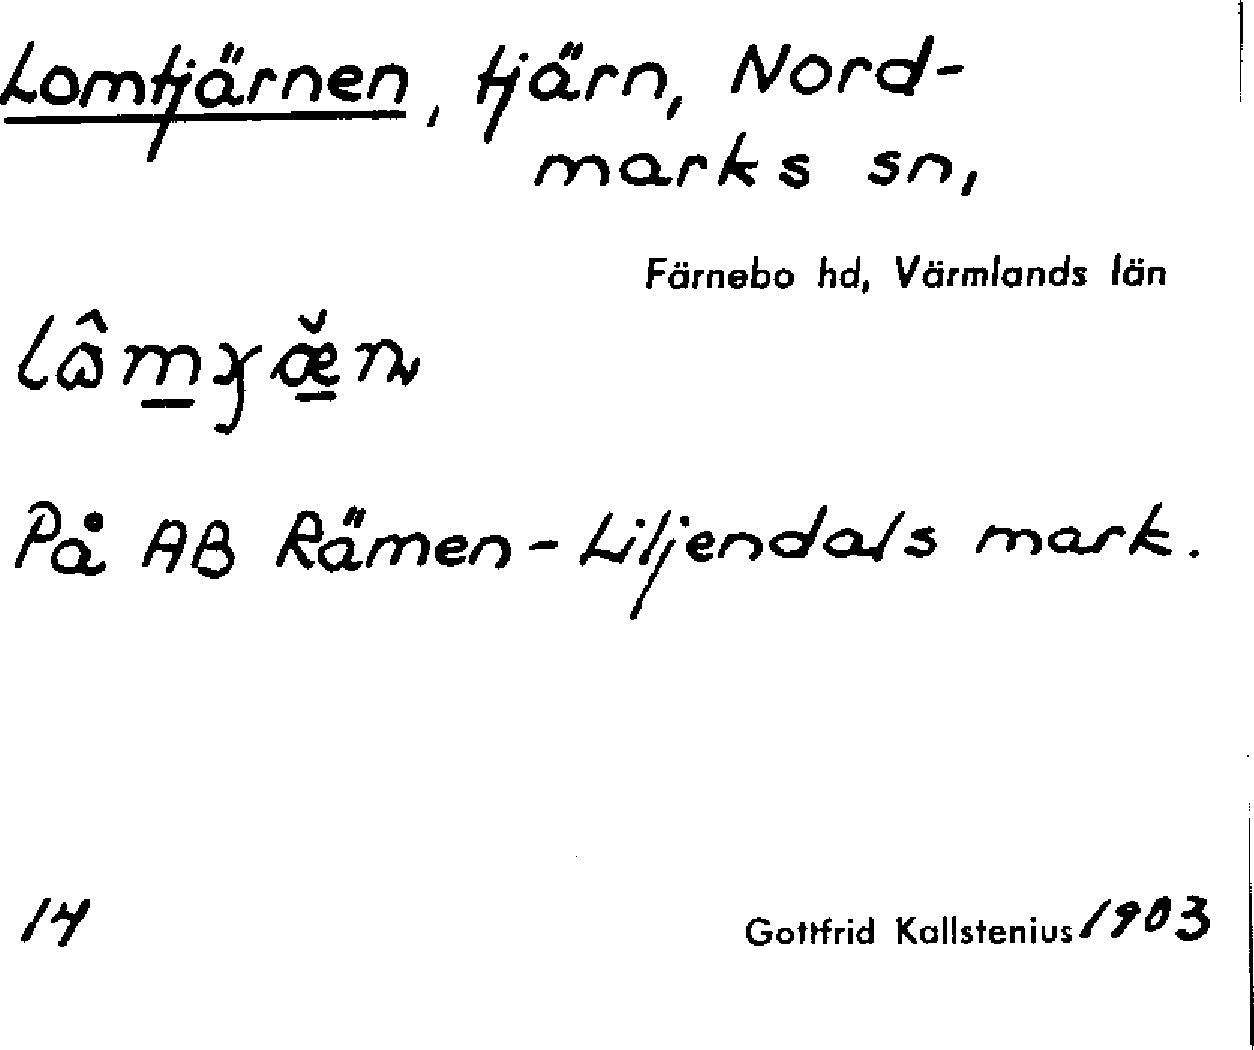 Lomtjärnen, tjärn, Nord-
marks sn,
Färnebo hd, Värmlands län
På AB Rämen-Liljendals mark.
14
Gottfrid Kallstenius 1903